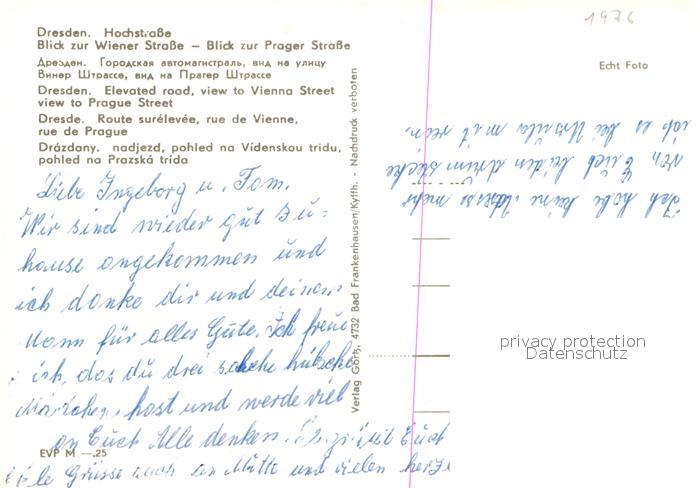 Dresden. Hochstraße
Blick zur Wiener Straße – Blick zur Prager Straße
Дрезден. Городская автомагистраль, вид на улицу
Винер Штрассе, вид на Прагер Штрассе
Dresden. Elevated road, view to Vienna Street
view to Prague Street
Dresde. Route surélevée, rue de Vienne,
rue de Prague
Drázdany. nadjezd, pohled na Vídenskou tridu,
pohled na Prazská trída
Liebe Ingeborg u. Tom.
Wir sind wieder gut zu-
hause angekommen und
ich danke dir und deinem
Mann für alles Gute. Ich freue
ich, das du drei solche hübsche
Märchen, hast und werde viel
an Euch Alle denken. Es grüßt Euch
viele Grüsse auch an Mutti und vielen herzl
EVP M –.25
Verlag Göritz, 4732 Bad Frankenhausen/Kyffh. - Nachdruck verboten
1976
Echt Foto
Ich habe keine Adresse mehr
von Euch beiden drum stecke
ich es bei Ursula mit rein.
privacy protection
Datenschutz